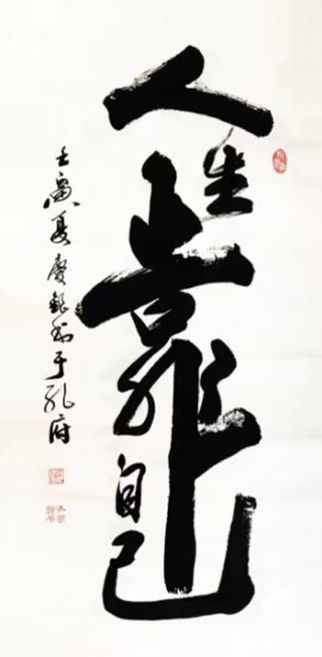 人生靠自己
壬寅夏慶书于孔府